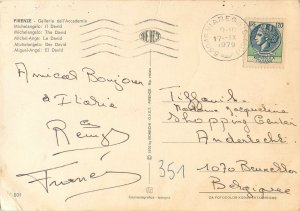 FIRENZE - Galleria dell'Accademia
Michelangelo: Il David
Michelangelo: The David
Michel-Ange: Le David
Michelangelo: Der David
Miguel-Angel: El David
120
17-IX
1979
Amical Bonjour
d'Italie
Remy
France
Tiffany
Madame Jacqueline
Shopping Center
Anderlecht
1070 Bruxelles
Belgique
351
801